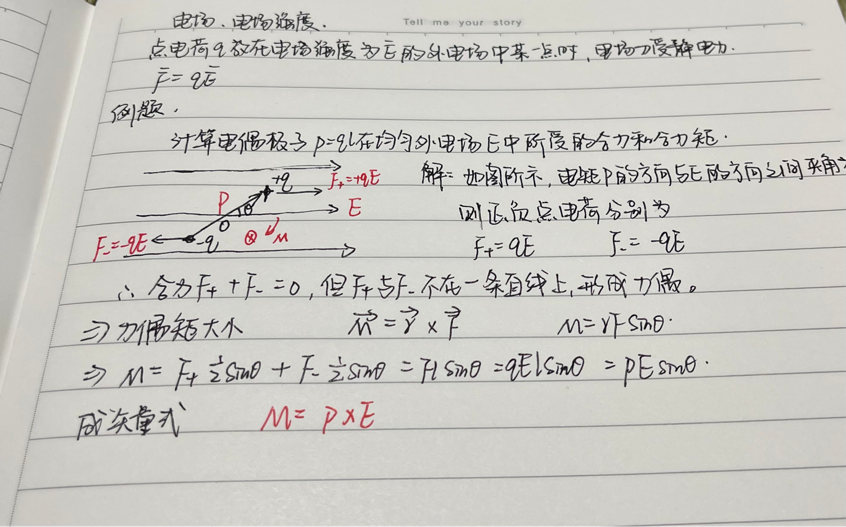 Tell me your story
电场、电场强度.
点电荷q放在电场强度为E的外电场中某一点时,电场力受静电力.
F̄=qĒ
例题.
计算电偶极子p=ql在均匀外电场E中所受的合力和合力矩.
+q
F₊=+qE
P
θ
E
O
F₋=-qE
-q
⊗
M
解:如图所示,电矩P的方向与E的方向之间夹角为
则正负点电荷分别为
F₊=qE F₋=-qE
∴合力F₊+F₋=0,但F₊与F₋不在一条直线上,形成力偶。
⇒力偶矩大小 M⃗=r⃗×F⃗ M=rFsinθ.
⇒ M=F₊½sinθ+F₋½sinθ=Flsinθ=qElsinθ=pEsinθ.
成矢量式 M=P×E